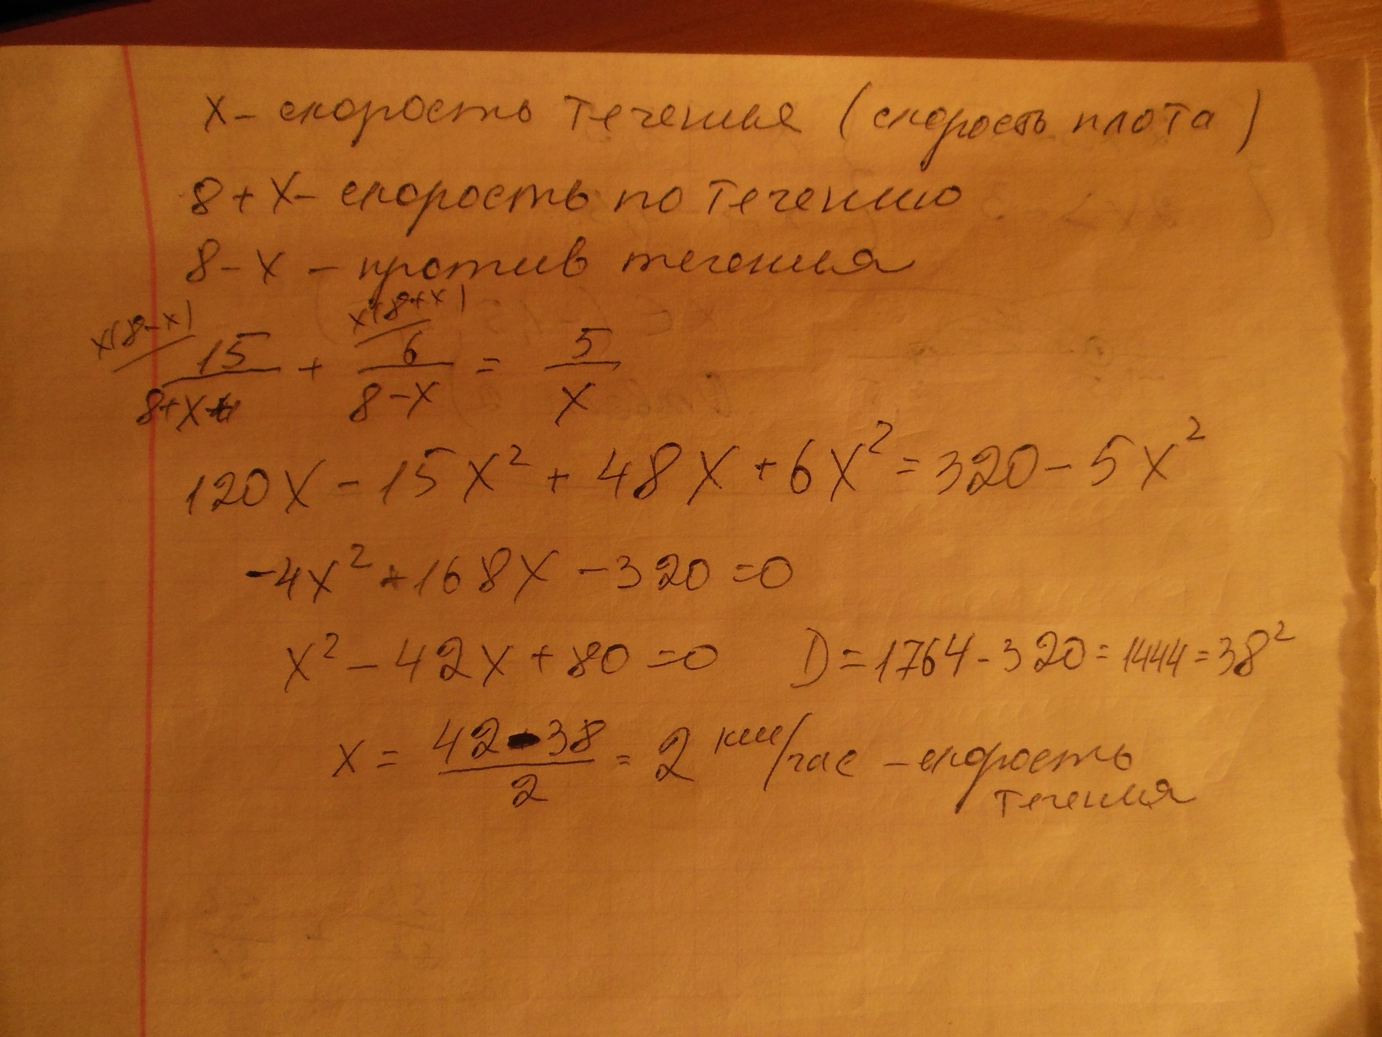 x - скорость течения (скорость плота)
8 + x - скорость по течению
8 - x - против течения
x(8-x) x(8+x)
15/8+x + 6/8-x = 5/x
120x - 15x² + 48x + 6x² = 320 - 5x²
-4x² + 168x - 320 = 0
x² - 42x + 80 = 0 D = 1764 - 320 = 1444 = 38²
x = 42-38/2 = 2 км/час - скорость
течения